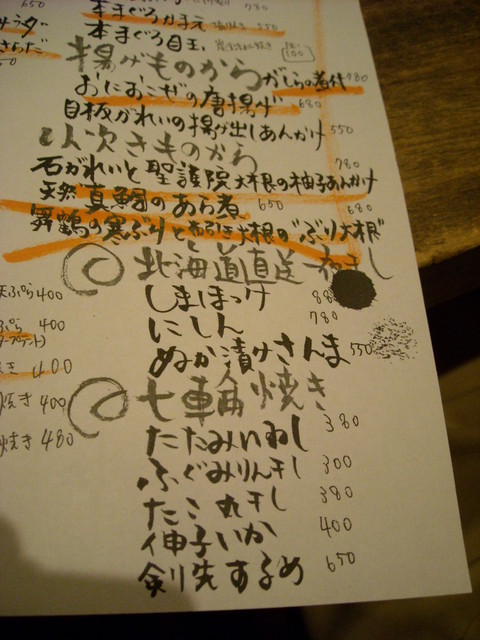 サラダ
650
本まぐろかま元 塩焼き 550
780
本まぐろ目玉
揚げものから
がしらの煮付 780
おにおこぜの唐揚げ 680
目板がれいの揚げ出しあんかけ 550
炊きものから
石がれいと聖護院大根の柚子あんかけ 780
天然真鯛のあら煮 650
舞鶴の寒ぶりと大根の"ぶり大根" 680
北海道直送一夜干し
しまほっけ 88
にしん 780
ぬか漬けさんま 550
七輪焼き
たたみいわし 380
ふぐみりん干し 300
たこ丸干し 380
伸子いか 400
剣先するめ 650
天ぷら 400
ぷら 400
き 400
焼き 400
焼き 480